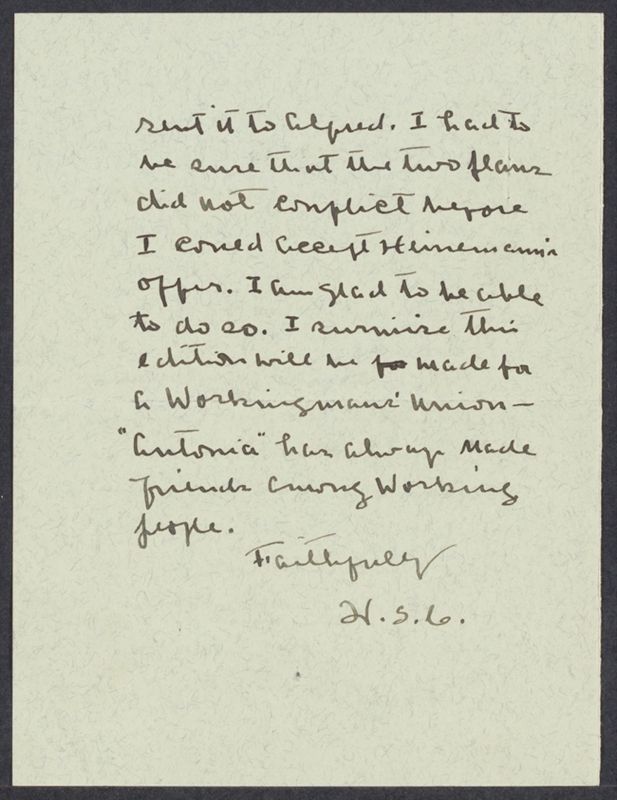 sent it to Alfred. I had to
be sure that the two plans
did not conflict before
I could accept Heinemann's
offer. I am glad to be able
to do so. I surmise this
edition will be made for
a Workingmans' Union—
"Antonia" has always made
friends among Working
people.
Faithfully
W.S.C.